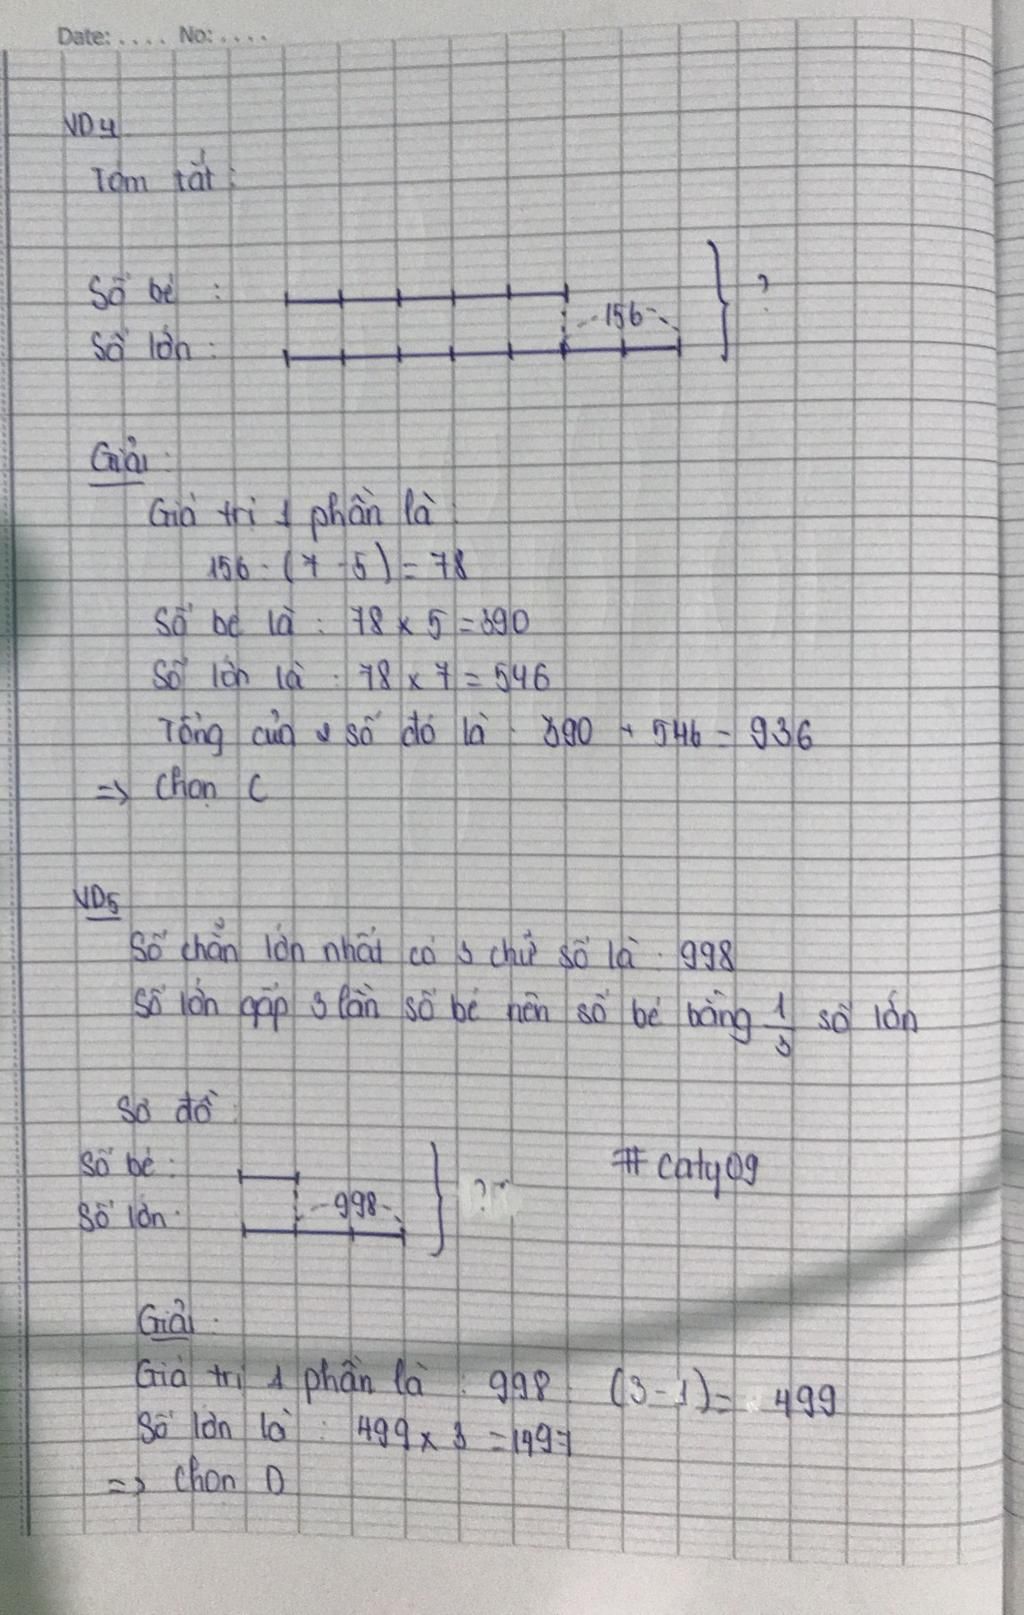 Date: .... No: ....
VD4
Tóm tắt:
Số bé :
156
?
Số lớn :
Giải :
Giá trị 1 phần là :
156 : (7 - 5) = 78
Số bé là : 78 x 5 = 390
Số lớn là : 78 x 7 = 546
Tổng của 2 số đó là : 390 + 546 = 936
=> Chọn C
VD5
Số chẵn lớn nhất có 3 chữ số là : 998
Số lớn gấp 3 lần số bé nên số bé bằng 1/3 số lớn
Sơ đồ :
Số bé :
998
?
# caty09
Số lớn :
Giải :
Giá trị 1 phần là : 998 : (3 - 1) = 499
Số lớn là : 499 x 3 = 1497
=> Chọn D